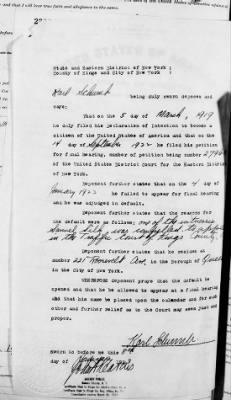 State and Eastern District of New York :
County of Kings and City of New York :
Karl Schunk being duly sworn deposes and
says:
That on the 5 day of March 1919
he duly filed his Declaration of Intention to become a
citizen of the United States of America and that on the
day of September 1922 he filed his petition
for final hearing, number of petition being number
of the United States District Court for the Eastern District
of New York.
Deponent further states that on the 4 day of
January 1923 he failed to appear for final hearing
and he was adjudged in default.
Deponent further states that the reasons for
the default were as follows: one of the witnesses
Samuel was compelled to appear
in the Traffic Court of Kings County.
Deponent further states that he resides at
number 221 Roosevelt Ave, in the Borough of
in the City of New York.
WHEREFORE deponent prays that the default be
opened and that he be allowed to appear at a final hearing
and that his name be placed upon the calendar and for such
other and further relief as to the Court may seem just and
proper.
Karl Schunk
Sworn to before me this
day of